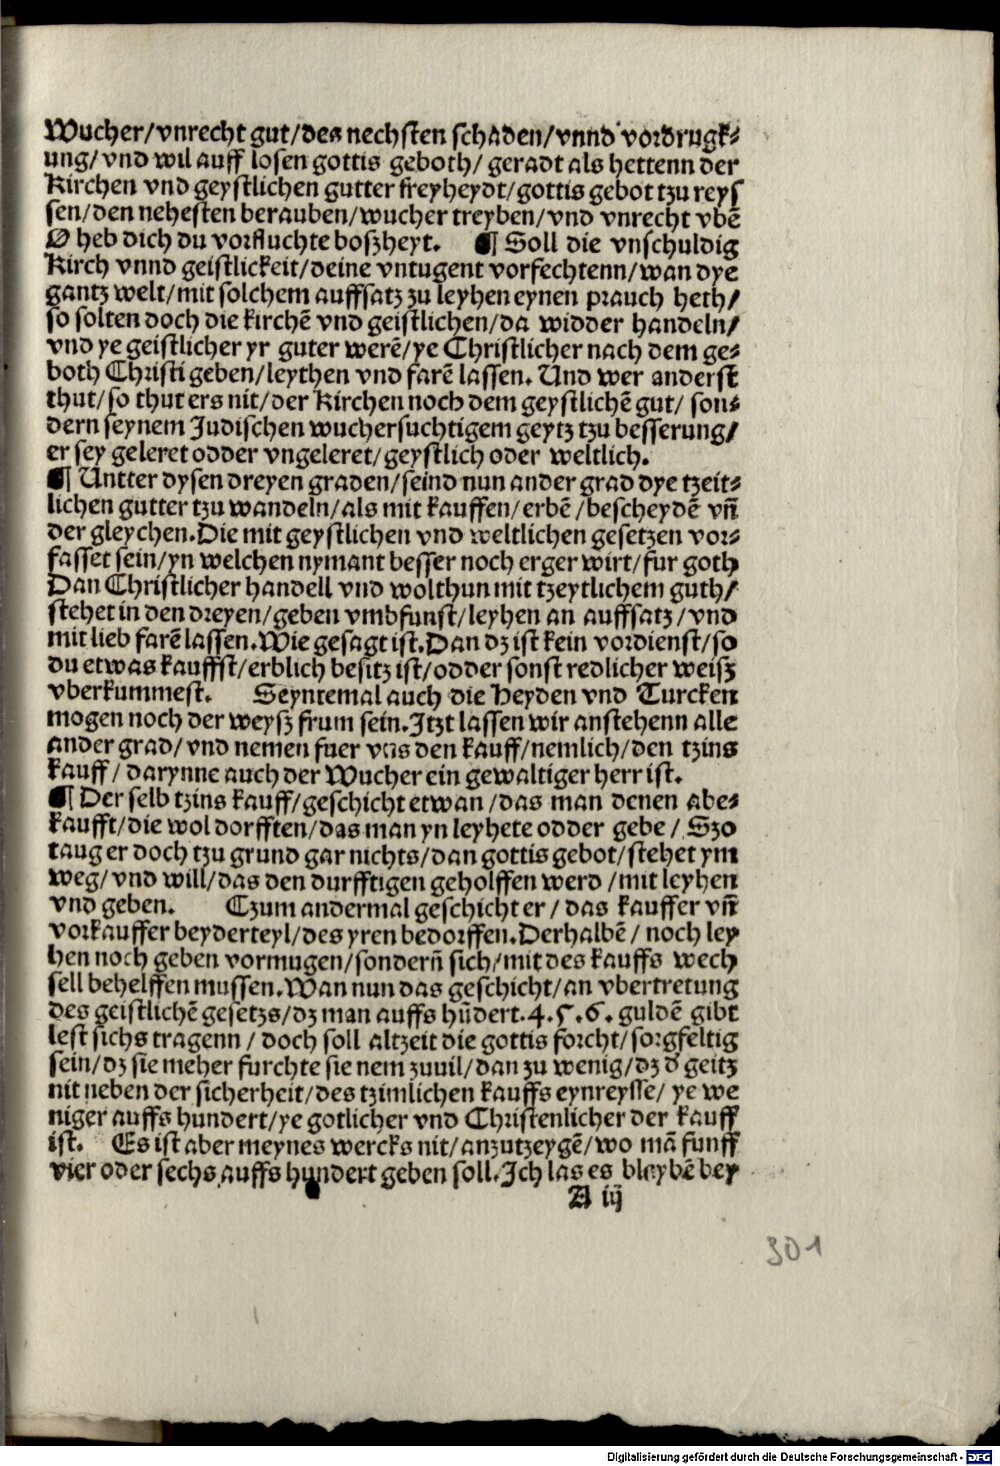 Wucher/vnrecht gut/des nechsten schaden/vnnd vordrugk⸗
ung/vnd wil auff losen gottis geboth/geradt als hettenn der
Kirchen vnd geystlichen gutter freyheydt/gottis gebot tzu reys
sen/den nehesten berauben/wucher treyben/vnd vnrecht vbē
O heb dich du vorfluchte boszheyt. ¶ Soll die vnschuldig
Kirch vnnd geistlickeit/deine vntugent vorfechtenn/wan dye
gantz welt/mit solchem auffsatz zu leyhen eynen prauch heth/
so solten doch die kirchē vnd geistlichen/da widder handeln/
vnd ye geistlicher yr guter werē/ye Christlicher nach dem ge⸗
both Christi geben/leythen vnd farē lassen. Und wer anderst
thut/so thut ers nit/der Kirchen noch dem geystlichē gut/son⸗
dern seynem Judischen wuchersuchtigem geytz tzu besserung/
er sey geleret odder vngeleret/geystlich oder weltlich.
¶ Untter dysen dreyen graden/seind nun ander grad dye tzeit⸗
lichen gutter tzu wandeln/als mit kauffen/erbē/bescheydē vn̄
der gleychen. Die mit geystlichen vnd weltlichen gesetzen vor⸗
fasset sein/yn welchen nymant besser noch erger wirt/fur goth
Dan Christlicher handell vnd wolthun mit tzeytlichem guth/
stehet in den dreyen/geben vmbfunst/leyhen an auffsatz/vnd
mit lieb farē lassen. Wie gesagt ist. Dan dz ist kein vordienst/so
du etwas kauffst/erblich besitz ist/odder sonst redlicher weisz
vberkummest. Seyntemal auch die Heyden vnd Turcken
mogen noch der weysz frum sein. Itzt lassen wir anstehenn alle
ander grad/vnd nemen fuer vns den kauff/nemlich/den tzins
kauff/darynne auch der Wucher ein gewaltiger herr ist.
¶ Der selb tzins kauff/geschicht etwan/das man denen abe⸗
kaufft/die wol dorfften/das man yn leyhete odder gebe/Szo
taug er doch tzu grund gar nichts/dan gottis gebot/stehet ym
weg/vnd will/das den durfftigen geholffen werd/mit leyhen
vnd geben. Czum andermal geschicht er/das kauffer vn̄
vorkauffer beyderteyl/des yren bedorffen. Derhalbē/noch ley
hen noch geben vormugen/sondern̄ sich/mit des kauffs wech
sell behelffen mussen. Wan nun das geschicht/an vbertretung
des geistlichē gesetzs/dz man auffs hūdert. 4. 5. 6. guldē gibt
lest sichs tragenn/doch soll altzeit die gottis forcht/sorgfeltig
sein/dz sie meher furchte sie nem zuuil/dan zu wenig/dz d̕ geitz
nit neben der sicherheit/des tzimlichen kauffs eynreysse/ye we
niger auffs hundert/ye gotlicher vnd Christenlicher der kauff
ist. Es ist aber meynes wercks nit/anzutzeygē/wo mā funff
vier oder sechs auffs hundert geben soll. Ich las es bleybē bey
A iij
301
Digitalisierung gefördert durch die Deutsche Forschungsgemeinschaft - DFG